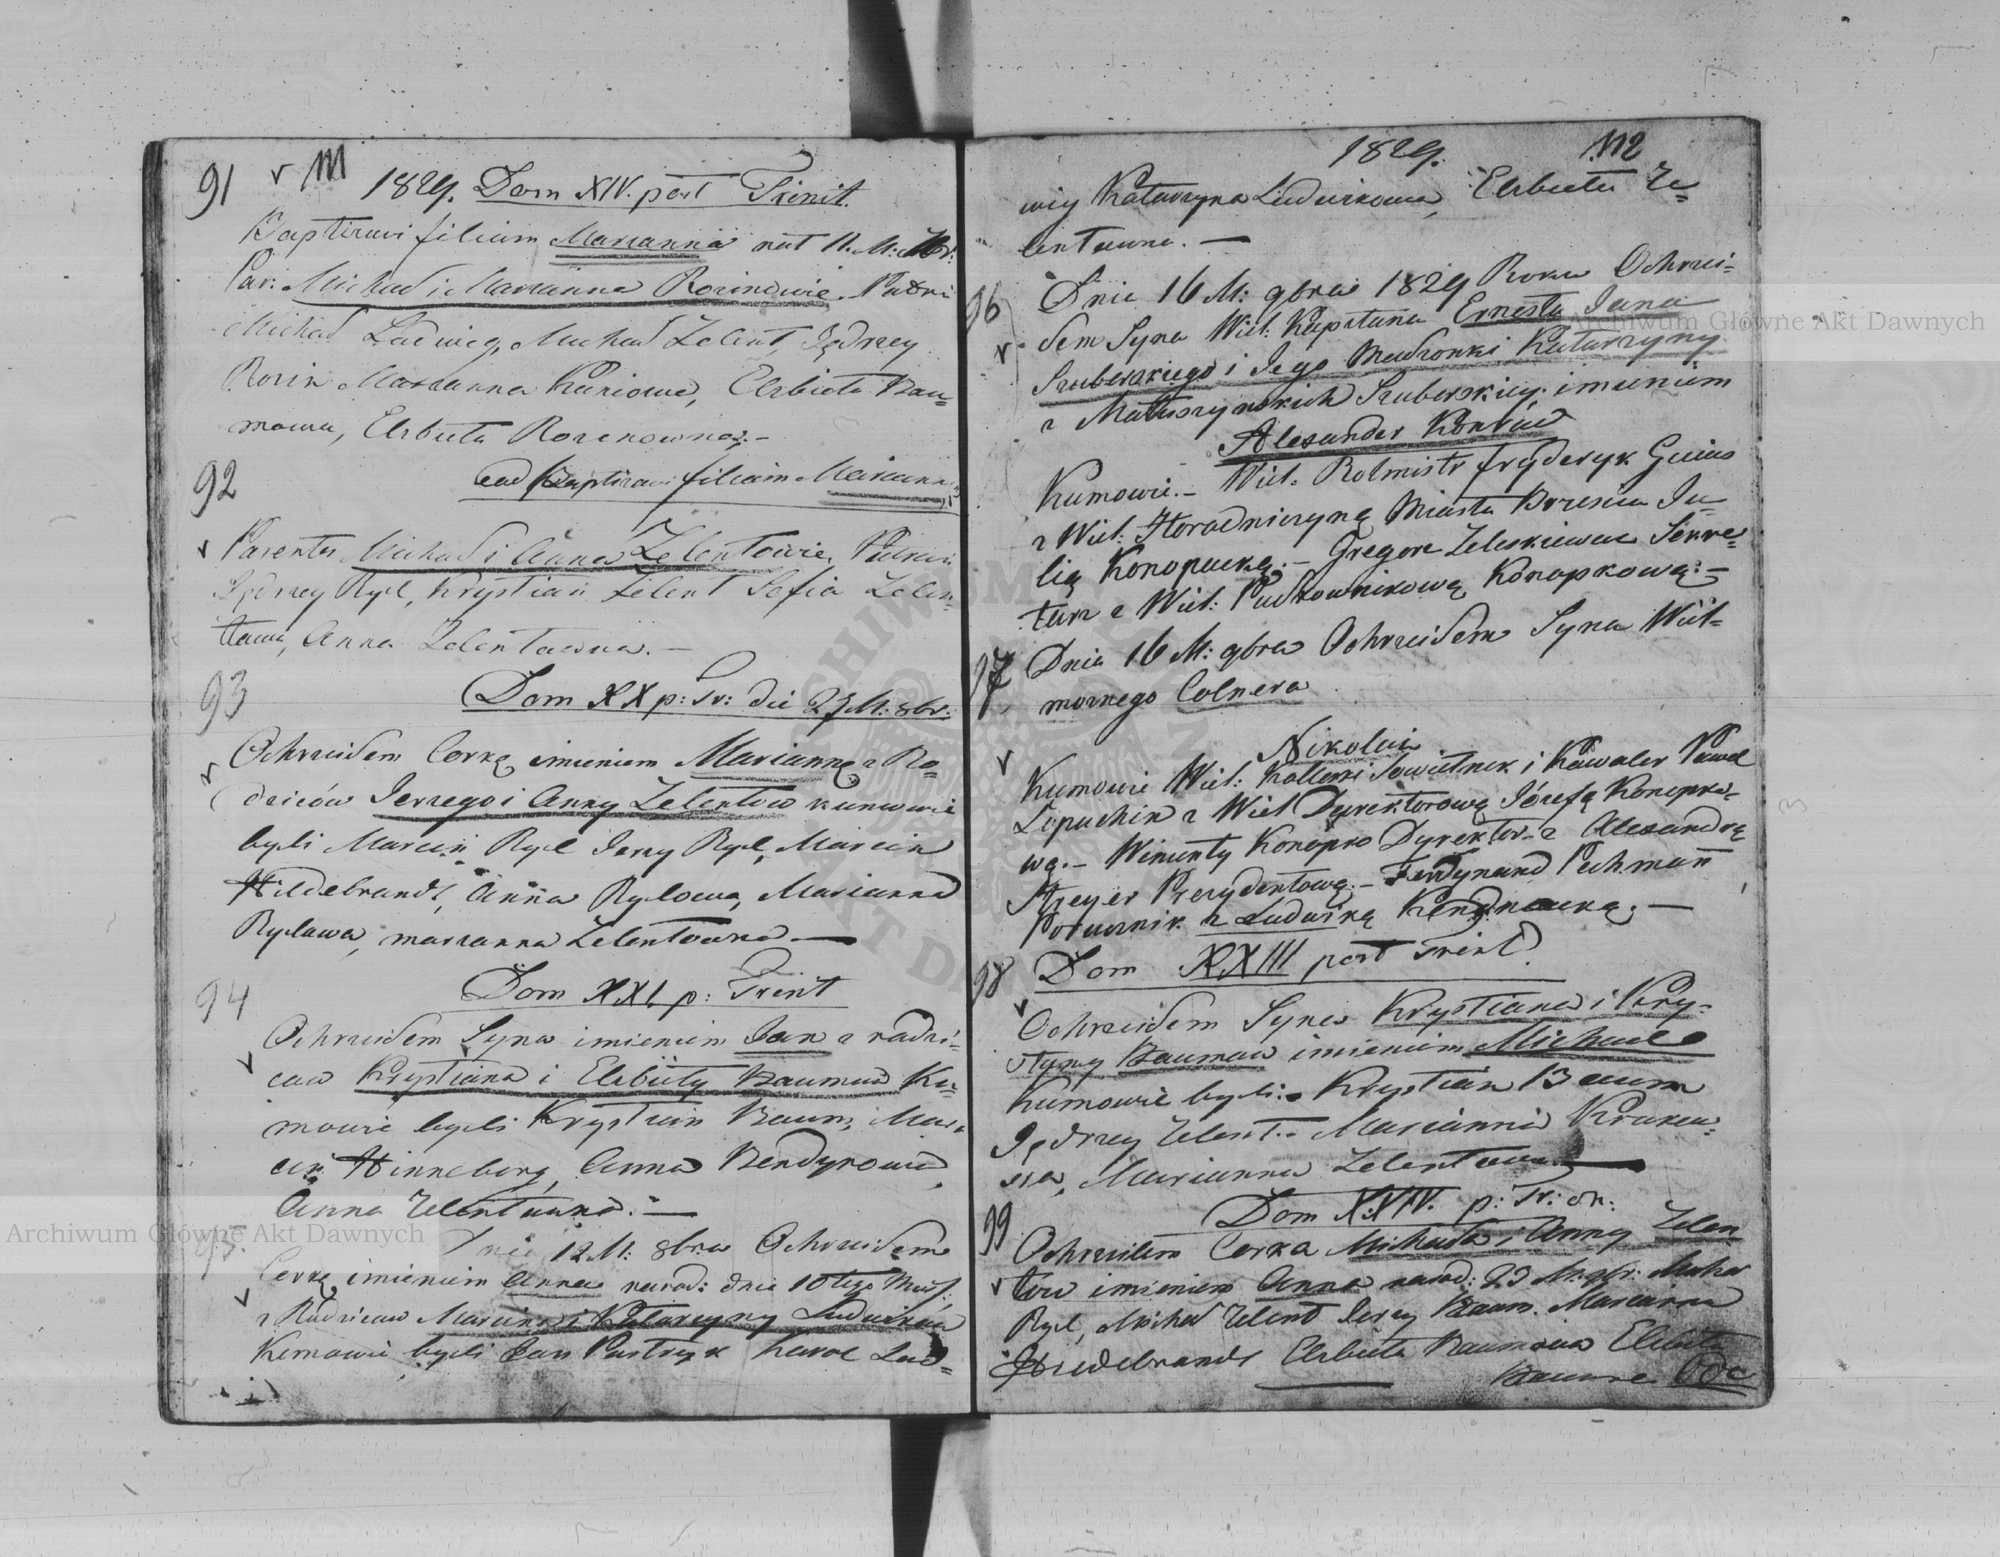 91 v 111
1829. Dom XIV. post Trinit.
Baptizavi filiam Marianna nat 11. M: 7br:
Par: Michael i Marianna Rozinowie. Patri
Michał Ludwig, Michał Zelent, Jędrzey
Rozin Marianna Kuniowa, Elzbieta Bau=
mowa, Elzbieta Rozenowna.–
92 ead Baptizavi filiam Mariann
v Parentes Michał i Anna Zelentowie. Patrini
Jędrzey Ryl, Krystian Zelent Sofia Zelen=
towa, Anna Zelentowna.–
93 Dom XX p: Tr: die 27 M: 8br:
v Ochrzciłem Corkę imieniem Mariannę z Ro=
dziców Jerzego i Anny Zelentow kumowie
byli Marcin Ryl Jerzy Ryl, Marcin
Hildebrandt, Anna Rylowa, Marianna
Rylowa, marianna Zelentowna —
94 Dom XXI p: Trint
v Ochrzciłem Syna imieniem Jan z rodzi=
cow Krystiana i Elzbiety Baumow Ku=
mowie byli Krystian Baum, Mar
cin Hinneborg, Anna Bendynowa,
Anna Zelentowna.—
95. Dnia 12 M: 8bra Ochrzciłem
Corkę imieniem Anna narod: dnia 10 tego Mies:
v z Rodzicow Marcina i Katarzyny Ludwikow
Kumowie byli Jan Pastryk Karol Lud=
1829. 112
wig Katarzyna Ludwikowa, Elzbieta Ze=
lentowna. —
96 Dnia 16 M: 9bra 1829 Roku Ochrzci=
v łem Syna Wiel. Kapitana Ernesta Jana
Szuberskiego i Jego Małzonki Katarzyny
z Matuszynskich Szuberskiey, imieniem
Alexander Konrad
Kumowie.– Wiel. Rotmistr Fryderyk
z Wiel: Horodniczyną Miasta Brzescia Ju=
lią Konopacką.– Gregorz Sekre=
tarz z Wiel: Pułkownikową Konopkową.–
97 Dnia 16 M: 9bra Ochrzciłem Syna Wiel=
moznego Colnera
v Nikolai
Kumowie Wiel: Kolleski Sowietnik i Kawaler Paweł
Łopuchin z Wiel Dyrektorową Józefą Konopko=
wą.– Wincenty Konopko Dyrektor z Alexandrą
Heyer Prezydentową.– Ferdynand Pechman
Porucznik z Ludwiką —
98 Dom XXIII post Trint.
v Ochrzciłem Syna Krystiana i Kry=
styny Baumow imieniem Michael
Kumowie byli: Krystian Baum
Jędrzey Zelent.– Marianna
Marianna Zelentowa —
99 Dom XXIV. p: Tr:
Ochrzciłem Corka Michała i Anny Zelen
v tow imieniem Anna narod: 23 M: 9br: Michał
Ryl, Michał Zelent Jerzy Baum. Marianna
Hildebrandt Elzbieta Baumowa Elzbieta
Archiwum Główne Akt Dawnych
Archiwum Główne Akt Dawnych